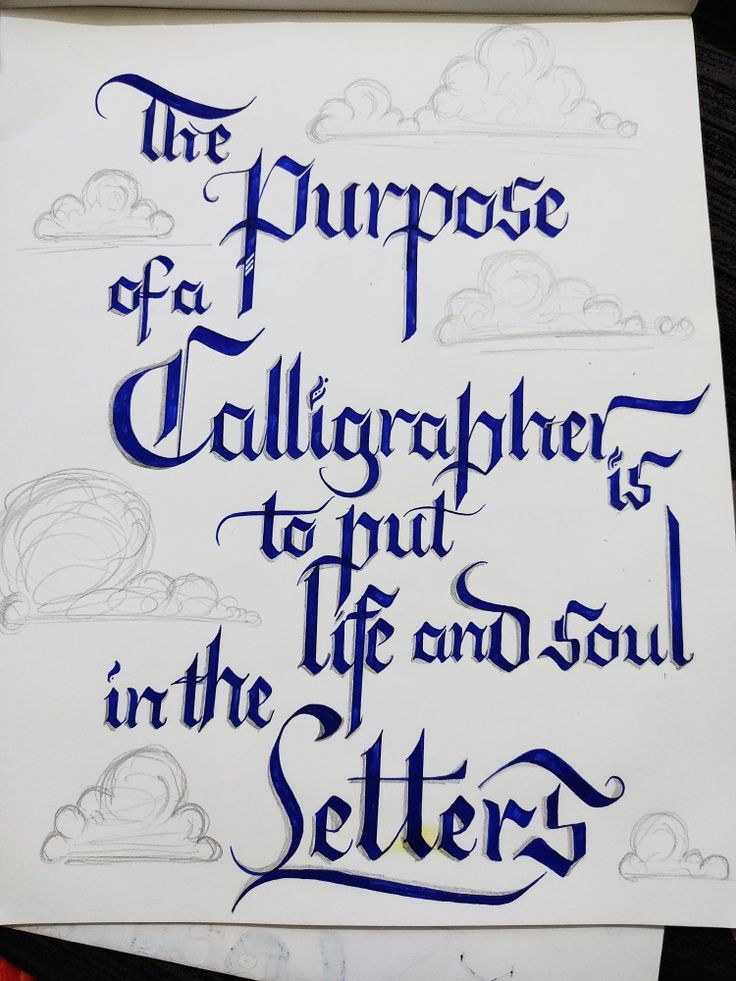 The
Purpose
of a
Calligrapher
is
to put
life and soul
in the
Letters